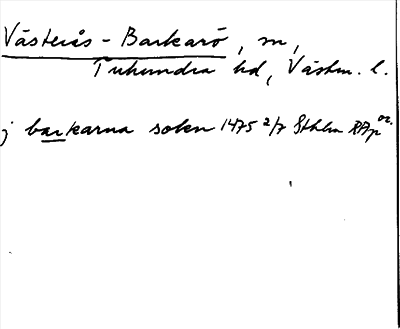 Västerås-Barkarö, sn,
Tuhundra hd, Västm. l.
j barkarna sokn 1475 2/7 Sthlm RAp or.